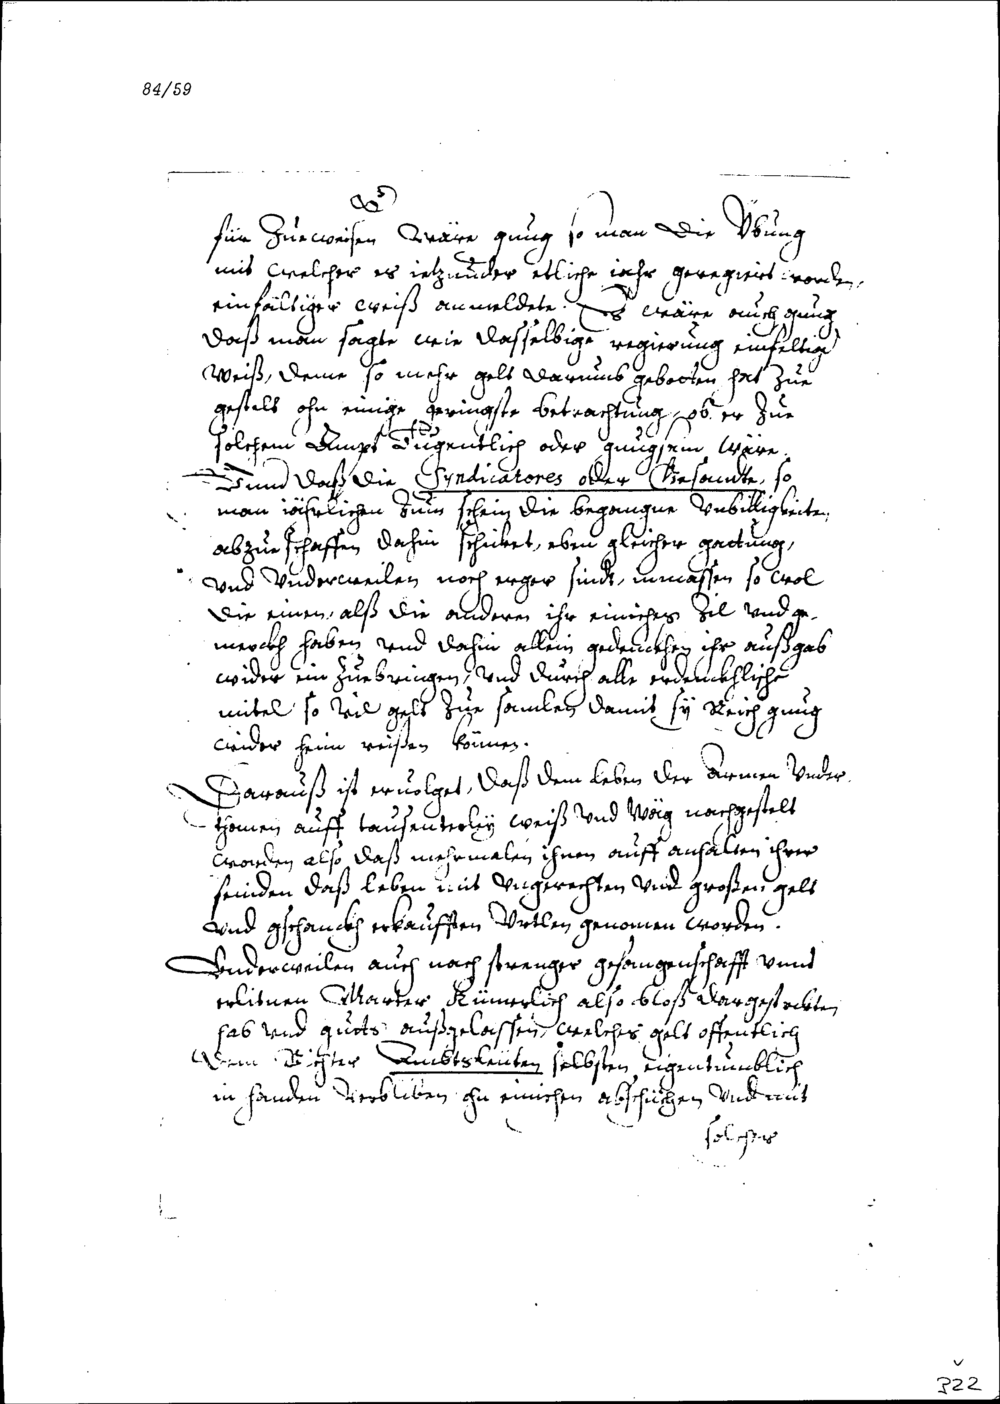 84/59
für Zue weisen Wäre gnug so man die Übung
mit welcher es ietzunder etliche iahr geregiert worden,
einfältiger weiß anmeldete. Es wäre auch gnug
daß man sagte wie dasselbige regierung einfeltig
Weiß, deme so mehr gelt darumb gebotten hat Zue
gestelt ohn einige geringste betrachtung, ob er Zue
solchem Ampt Tugentlich oder gnugsam wäre.
Vnnd daß die Syndicatores oder Gesandte, so
man iährlichen Zum schein die begangne Vnbilligkeiten
abzueschaffen dahin schicket, eben gleicher gattung,
vnd Vnderweilen noch erger sindt, inmassen so wol
die einen, alß die anderen ihr einiches Zil vnd ge-
merckh haben vnd dahin allein gedenckhen ihr außgab
wider ein Zuebringen, vnd durch alle erdenckhliche
mitel so vil gelt Zue samlen damit sy Reich gnug
wider heim reißen können.
Darauß ist ervolget, daß dem leben der Armen Vnder-
thonen auff tausenterley weiß vnd Wäg nachgestelt
worden also daß mehrmalen ihnen auff anhalten ihrer
feinden daß leben mit vngerechten vnd großem gelt
vnd gschanckh erkaufften Vrtlen genomen worden.
Vnderweilen auch nach strenger gefangenschafft vnnd
erlitnen Marter Kümerlich also bloß dargestrekten
hab vnd guets außgelassen, welches gelt offentlich
dem Richter Ambtsleüten selbsten eigentumblich
in handen verbliben ohn einichen abschüchen vnd mit
solcher
322